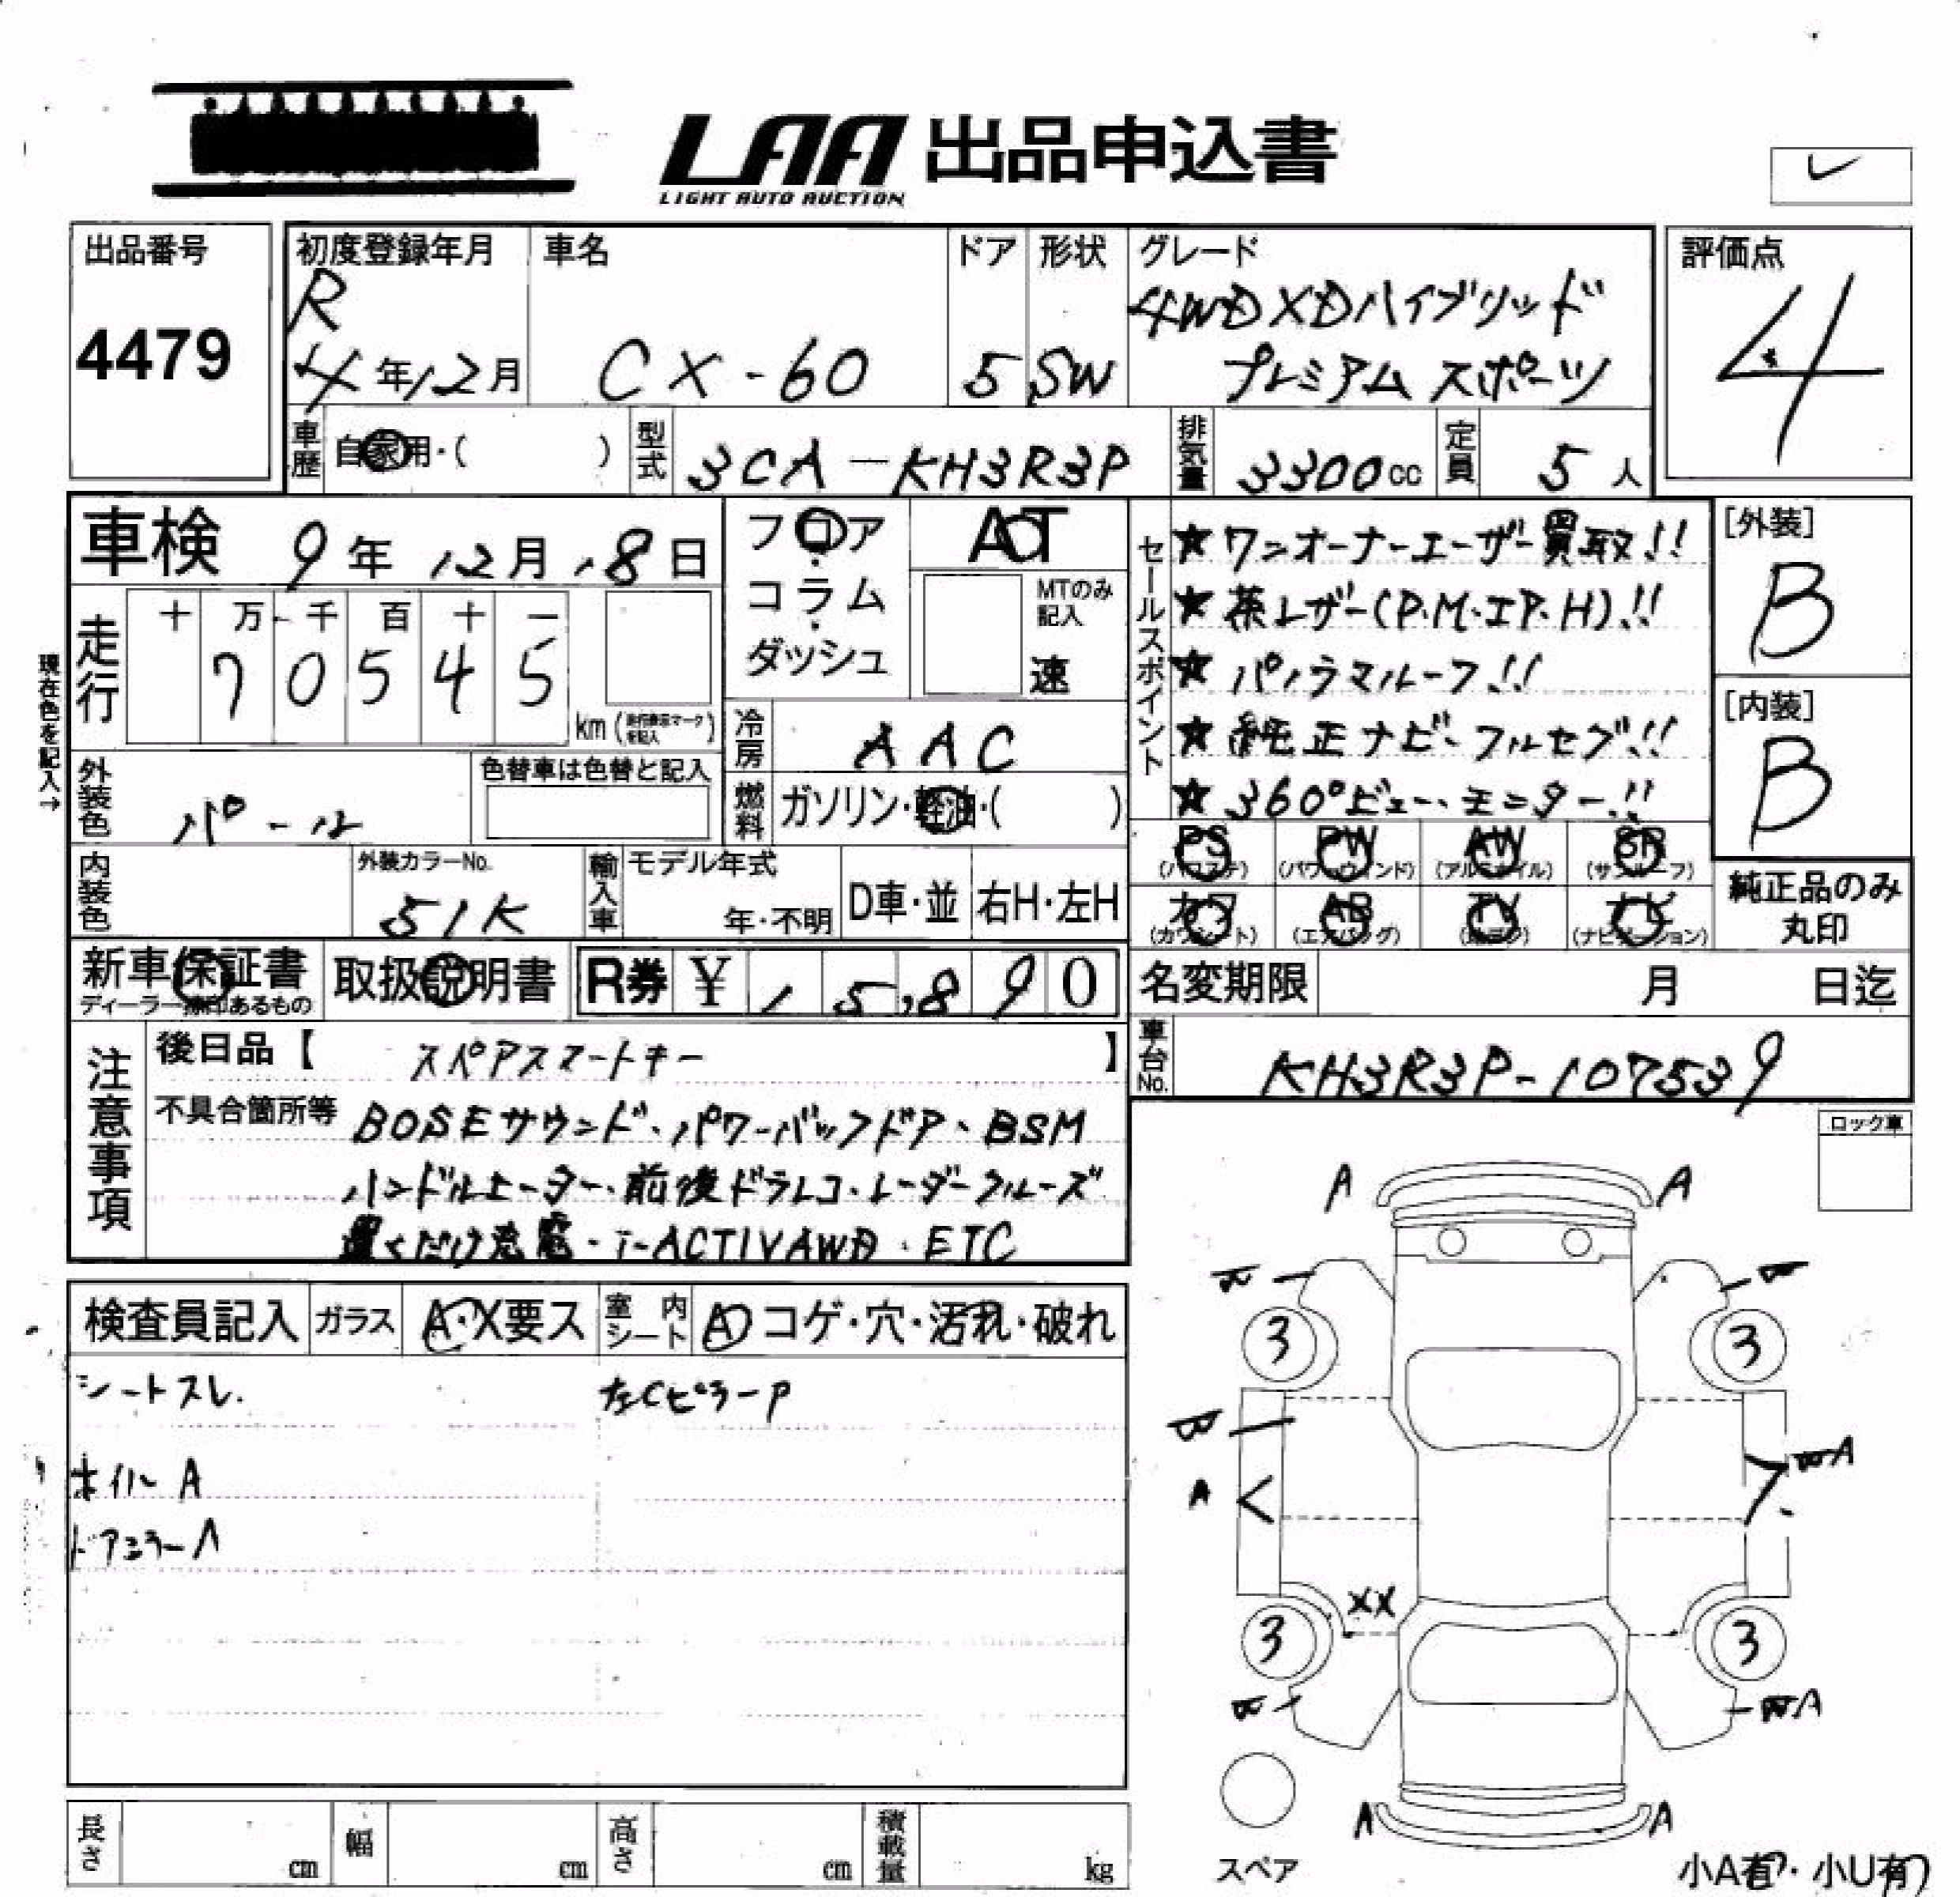 LAA 出品申込書
LIGHT AUTO AUCTION
出品番号
4479
初度登録年月
R
4年12月
車名
CX-60
ドア
5
形状
SW
グレード
4WD XDハイブリッド
プレミアム スポーツ
評価点
4
車歴
自家用・( )
型式
3CA-KH3R3P
排気量
3300cc
定員
5人
車検 9年12月18日
フロア・
コラム・
ダッシュ
AT
MTのみ
記入
速
現在色を記入→
走行
十 万 千 百 十 一
7 0 5 4 5
km (走行表示マークを記入)
冷房
AAC
セールスポイント
★ワンオーナーユーザー買取!!
★茶レザー(P.M.IP.H)!!
★パノラマルーフ!!
★純正ナビ・フルセグ!!
★360°ビュー・モニター!!
[外装]
B
[内装]
B
外装色
パール
色替車は色替と記入
燃料
ガソリン・軽油・( )
内装色
外装カラーNo.
51K
輸入車
モデル年式
年・不明
D車・並
右H・左H
PS
(パワステ)
PW
(パワーウィンド)
AW
(アルミホイル)
SR
(サンルーフ)
カワ
(カワシート)
AB
(エアバッグ)
TV
ナビ
(ナビゲーション)
純正品のみ
丸印
新車保証書
ディーラー捺印あるもの
取扱説明書
R券 ¥ 15,890
名変期限
月 日迄
注意事項
後日品【 スペアスマートキー 】
車台No.
KH3R3P-107539
不具合箇所等 BOSEサウンド・パワーバックドア・BSM
ハンドルヒーター・前後ドラレコ・レーダークルーズ
置くだけ充電・i-ACTIVAWD・ETC
ロック車
検査員記入
ガラス
A・X要ス
室内シート
A コゲ・穴・汚れ・破れ
シートスレ.
左CピラーP
ホイルA
ドアミラーA
A A
3 3
A
A
XX
3 3
A
A A
スペア
小A有・小U有
長さ cm
幅 cm
高さ cm
積載量 kg